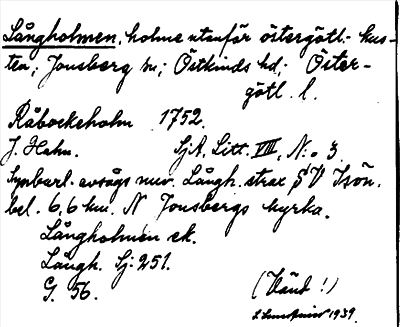 Långholmen, holme utanför östergötl:- kus-
ten; Jonsberg sn; Östkinds hd; Öster-
götl. l.
Råbockeholm 1752.
J. Hahn. SjA, Litt. VIII, N:o 3.
Synbarl. avsågs nuv. Långh. strax SV Isön.
bel. 6,6 km. N Jonsbergs kyrka.
Långholmen ek.
Långh. Sj: 251.
G. 56. (Vänd!)
1939.